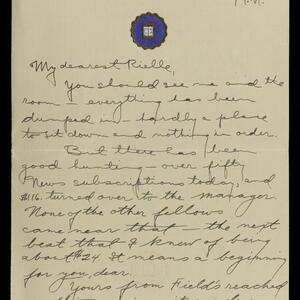 My dearest Rielle,
You should see me and the
room — everything has been
dumped in — hardly a place
to sit down and nothing in order.
But there has been
good hunting — over fifty
News subscriptions today, and
$116. turned over to the manager.
None of the other fellows
came near that — the next
best that I knew of being
about $24. It means a beginning
for you, dear.
Yours from Field's reached